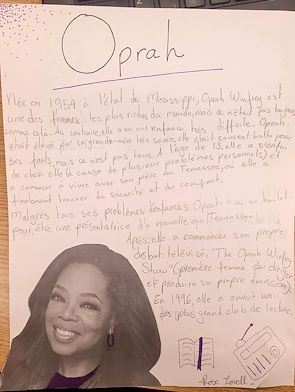 Oprah
Née en 1954 à l'état de Mississippi, Oprah Winfrey est
une des femmes les plus riches du monde, mais ce n'était pas toujours
comme cela. Au contraire, elle a eu une enfance très difficile. Oprah
était élevé par sa grande-mère très sévère, elle était souvent battu pour
ses faots, mais ce n'est pas tous. À l'age de 13, elle a s'enfui
de chez elle (à cause de plusieur problèmes personnels) et
a commencer à vivre avec son père au Tennessee, où elle a
finalement trouver du sécurité et du comfort.
Malgrès tous ses problèmes d'enfances, Oprah a eu un boulot
pour être une présentatrice d'la nouvelle, au Tennessee
Après, elle a commencer son propre
débat télévisé, "The Oprah Winfrey
Show" (première femme par diriger
et produire sa propre émission).
En 1996, elle a ouvert un
des plus grand club de lecture.
-Rose Lovell